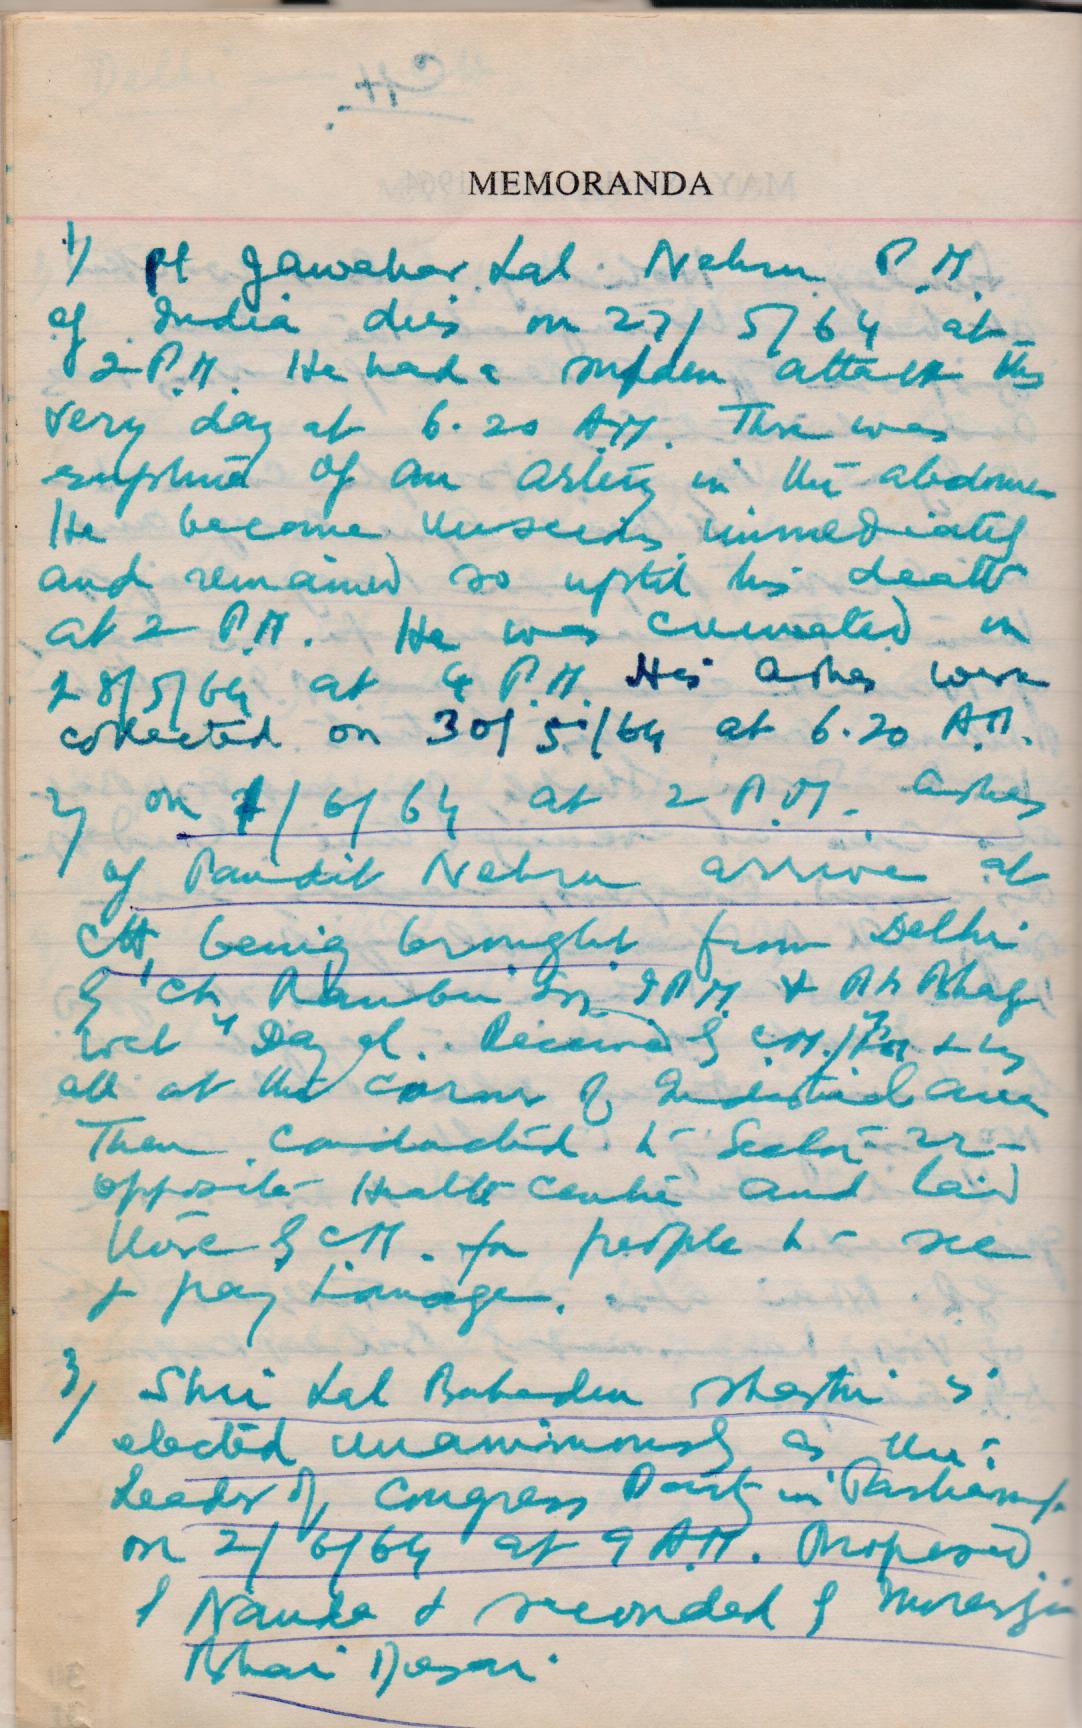 MEMORANDA
1/ Pt Jawahar Lal Nehru P.M.
of India dies on 27/5/64 at
2 P.M. He had a sudden attack this
very day at 6.20 A.M. There was
of an artery in the abdomen
He became immediately
and remained so uptil his death
at 2 P.M. He was cremated on
28/5/64 at 4 P.M. His ashes were
collected on 30/5/64 at 6.20 A.M.
2/ on 1/6/64 at 2 P.M. Ashes
of Pandit Nehru arrive at
CH, being brought from Delhi
Ch. &
Dayal. Received C.M./ & by
all at the corner of Industrial area
Then conducted to Sector 22
opposite Health Centre and laid
there by CM. for people to see
& pay homage.
3/ Shri Lal Bahadur Shastri is
elected unanimously as the
Leader of Congress Party in
on 2/6/64 at 9 A.M. Proposed
Nanda & seconded by Morarji
Bhai Desai.